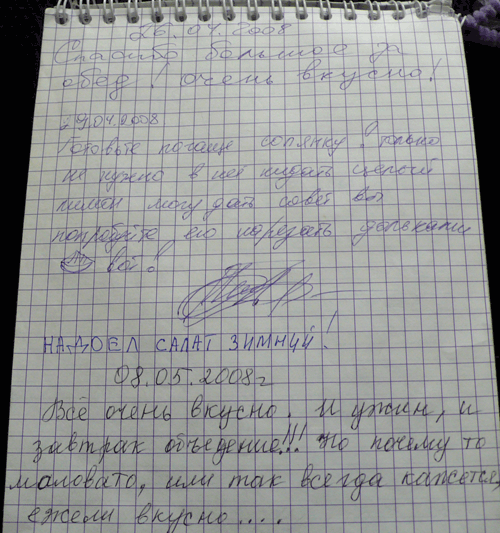 26.04.2008
Спасибо большое за
обед! очень вкусно!
29.04.2008
Готовьте почаще солянку! только
не нужно в неё кидать целый
лимон могу дать совет вы
попробуйте его нарезать дольками
вот!
НАДОЕЛ САЛАТ ЗИМНИЙ!
08.05.2008г
Всё очень вкусно. И ужин, и
завтрак объедение!!! Но почему то
маловато, или так всегда кажется,
ежели вкусно....